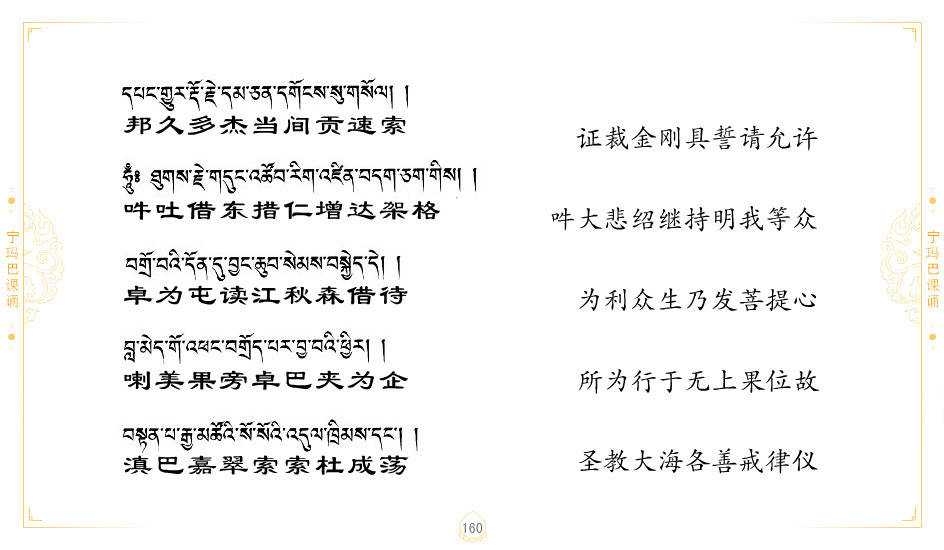 དཔང་གྱུར་རྡོ་རྗེ་དམ་ཅན་དགོངས་སུ་གསོལ། །
邦久多杰当间贡速索
证裁金刚具誓请允许
ཧཱུྃ༔ ཐུགས་རྗེ་གདུང་འཚོབ་རིག་འཛིན་བདག་ཅག་གིས། །
吽吐借东措仁增达架格
吽大悲绍继持明我等众
བགྲོ་བའི་དོན་དུ་བྱང་ཆུབ་སེམས་བསྐྱེད་དེ། །
卓为屯读江秋森借待
为利众生乃发菩提心
བླ་མེད་གོ་འཕང་བགྲོད་པར་བྱ་བའི་ཕྱིར། །
喇美果旁卓巴夹为企
所为行于无上果位故
བསྟན་པ་རྒྱ་མཚོའི་སོ་སོའི་འདུལ་ཁྲིམས་དང་། །
滇巴嘉翠索索杜成荡
圣教大海各善戒律仪
宁玛巴课诵
宁玛巴课诵
160